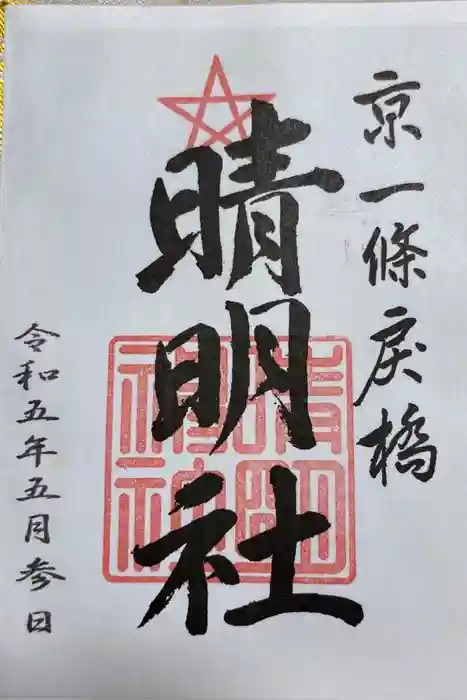 京一條戻橋
晴明社
晴明
神社
令和五年五月参日